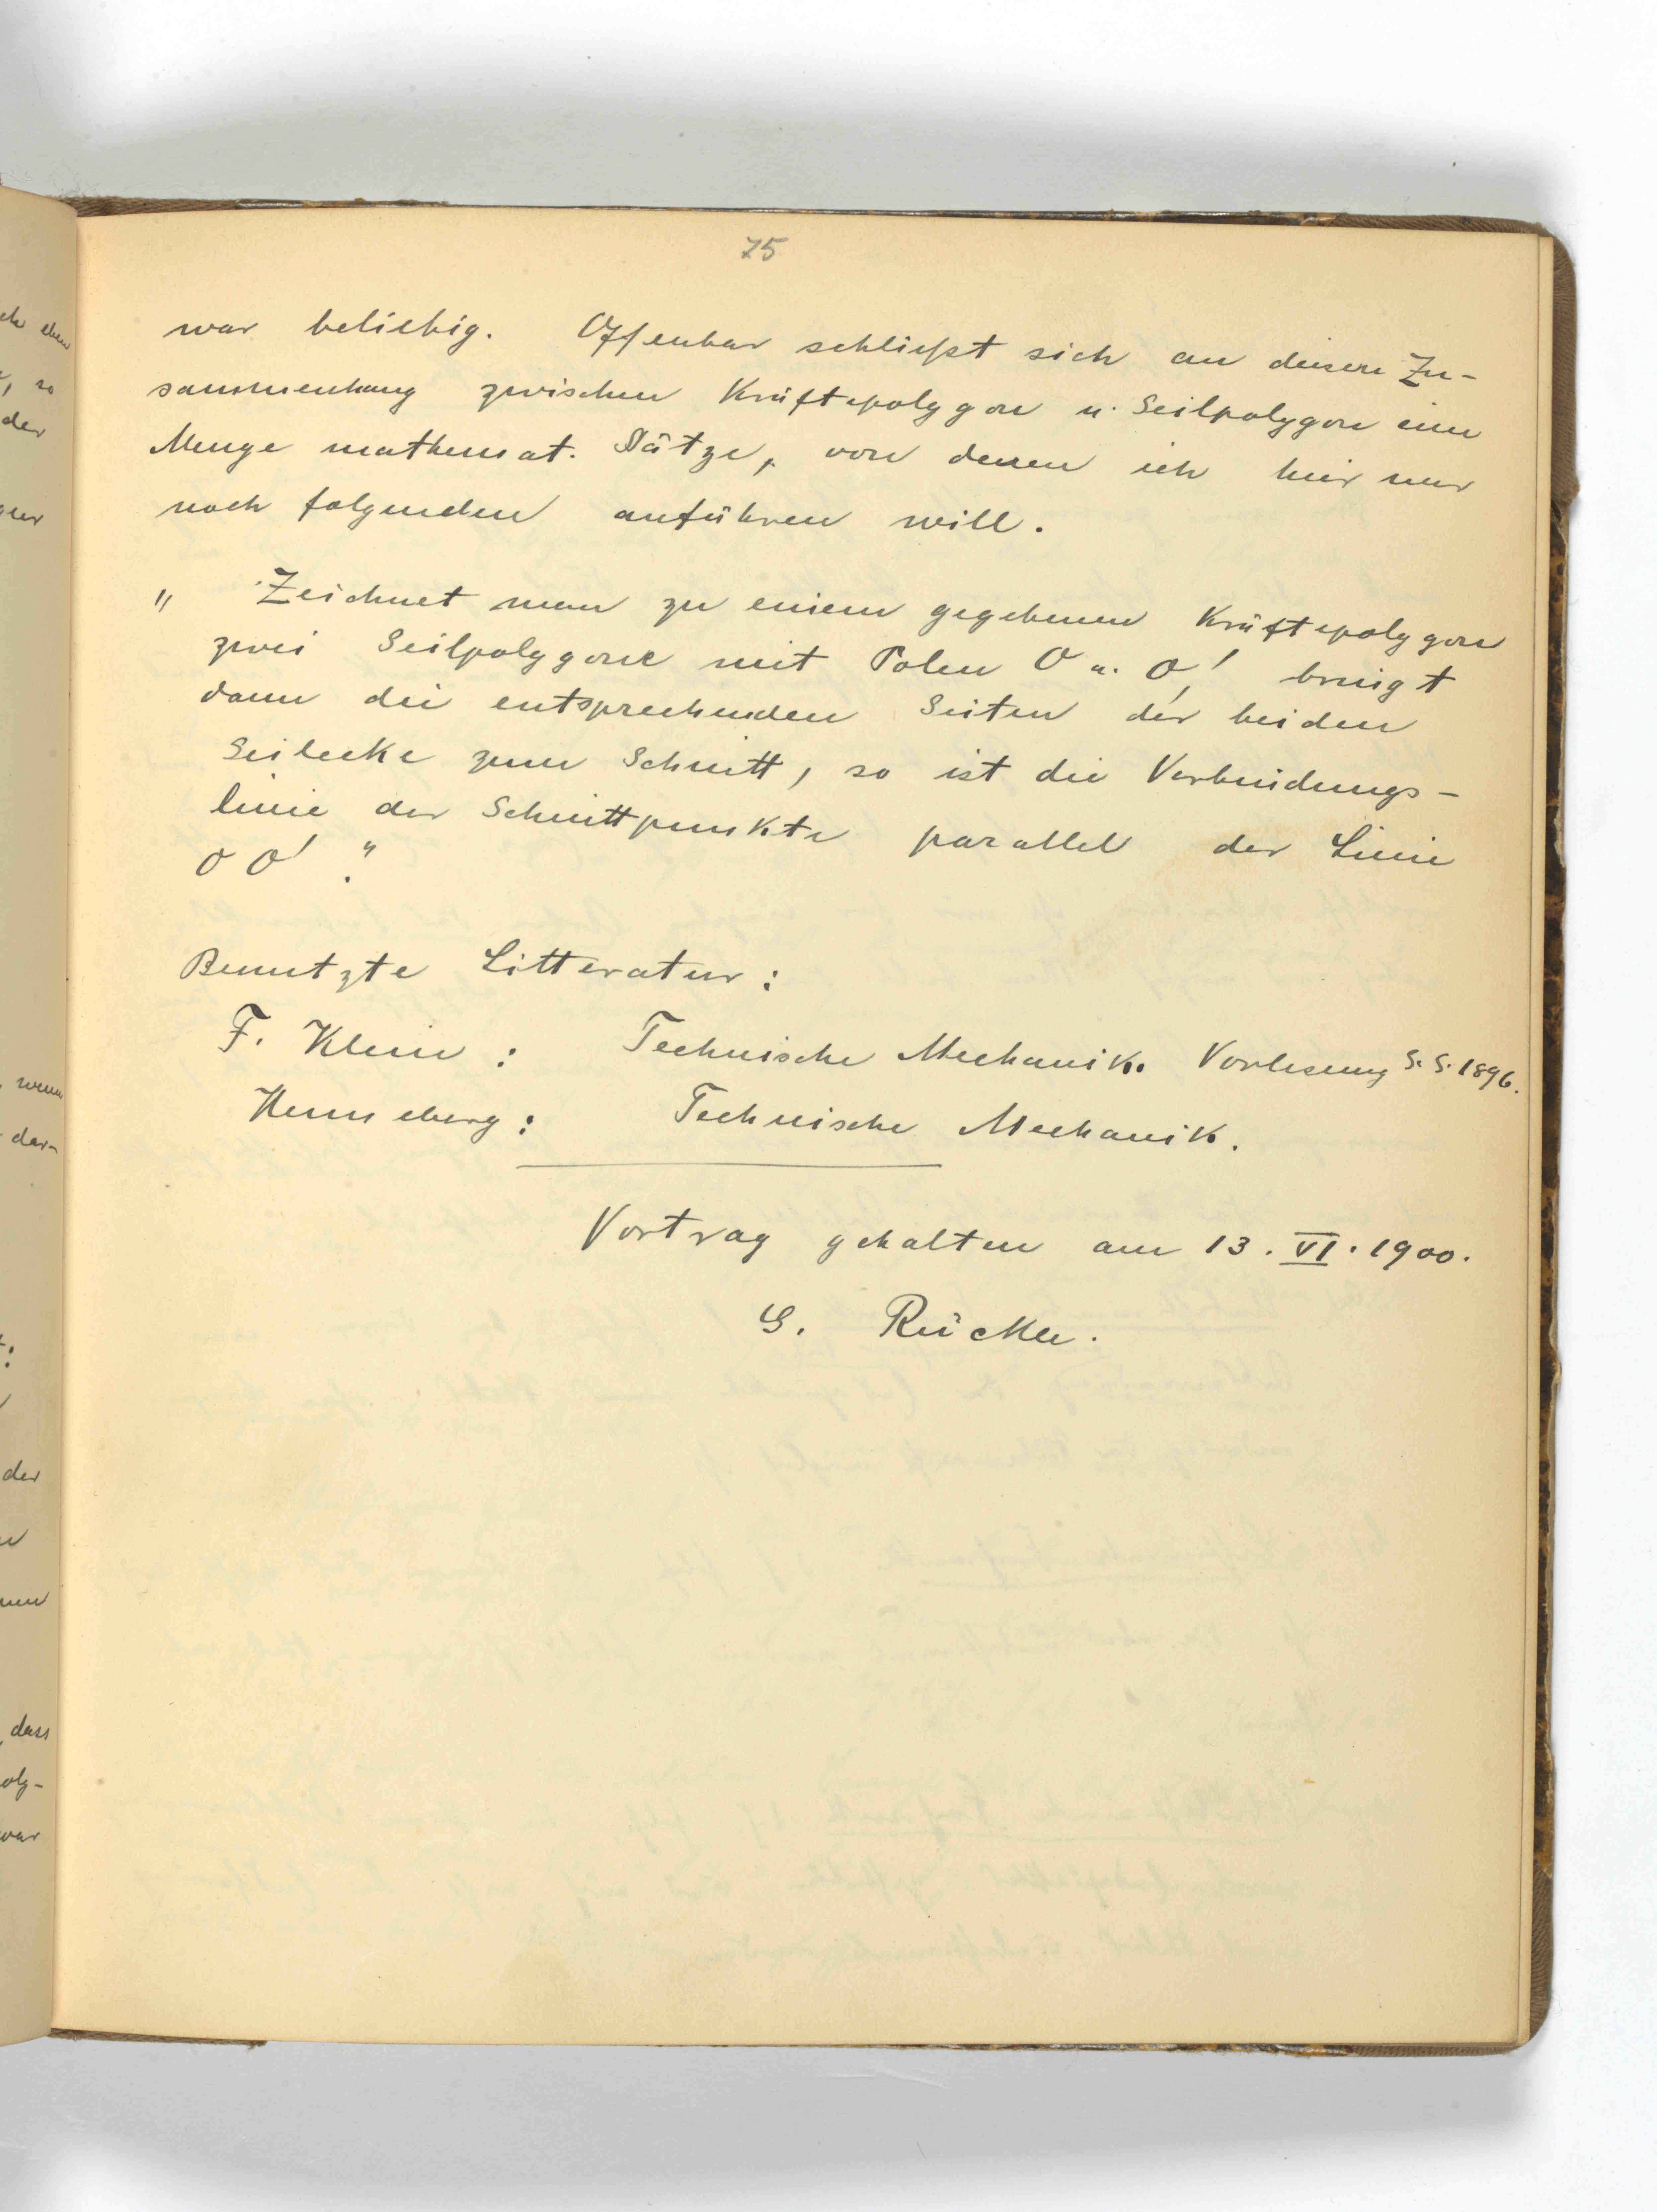 75
war beliebig. Offenbar schließt sich an diesen Zu-
sammenhang zwischen Kräftepolygon u. Seilpolygon eine
Menge mathemat. Sätze, von denen ich hier nur
noch folgenden anführen will.
" Zeichnet man zu einem gegebenen Kräftepolygon
zwei Seilpolygone mit Polen O u. O', bringt
dann die entsprechenden Seiten der beiden
Seilecke zum Schnitt, so ist die Verbindungs-
linie der Schnittpunkte parallel der Linie
O O'."
Benutzte Litteratur:
F. Klein: Technische Mechanik. Vorlesung S. S. 1896.
Henneberg: Technische Mechanik.
Vortrag gehalten am 13. VI. 1900.
G. Rückle.